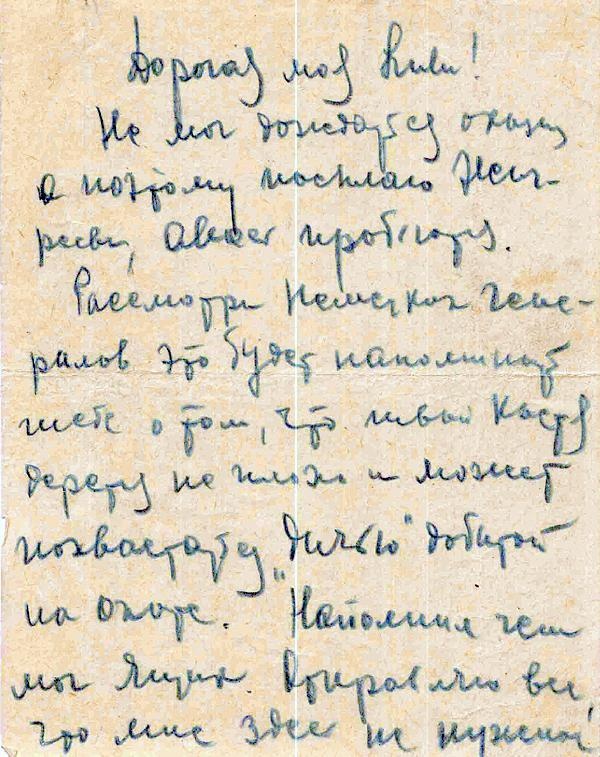 Дорогая моя Киви!
Не мог дождаться оказии
а поэтому посылаю
авось пробьются.
Рассмотри Немецких гене-
ралов это будет напоминать
тебе о том, что твой Костя
дерется не плохо и может
похвастаться „дичью" добытой
на охоте. Наполнил чем
мог ящик. Отправляю все,
что мне здесь не нужно